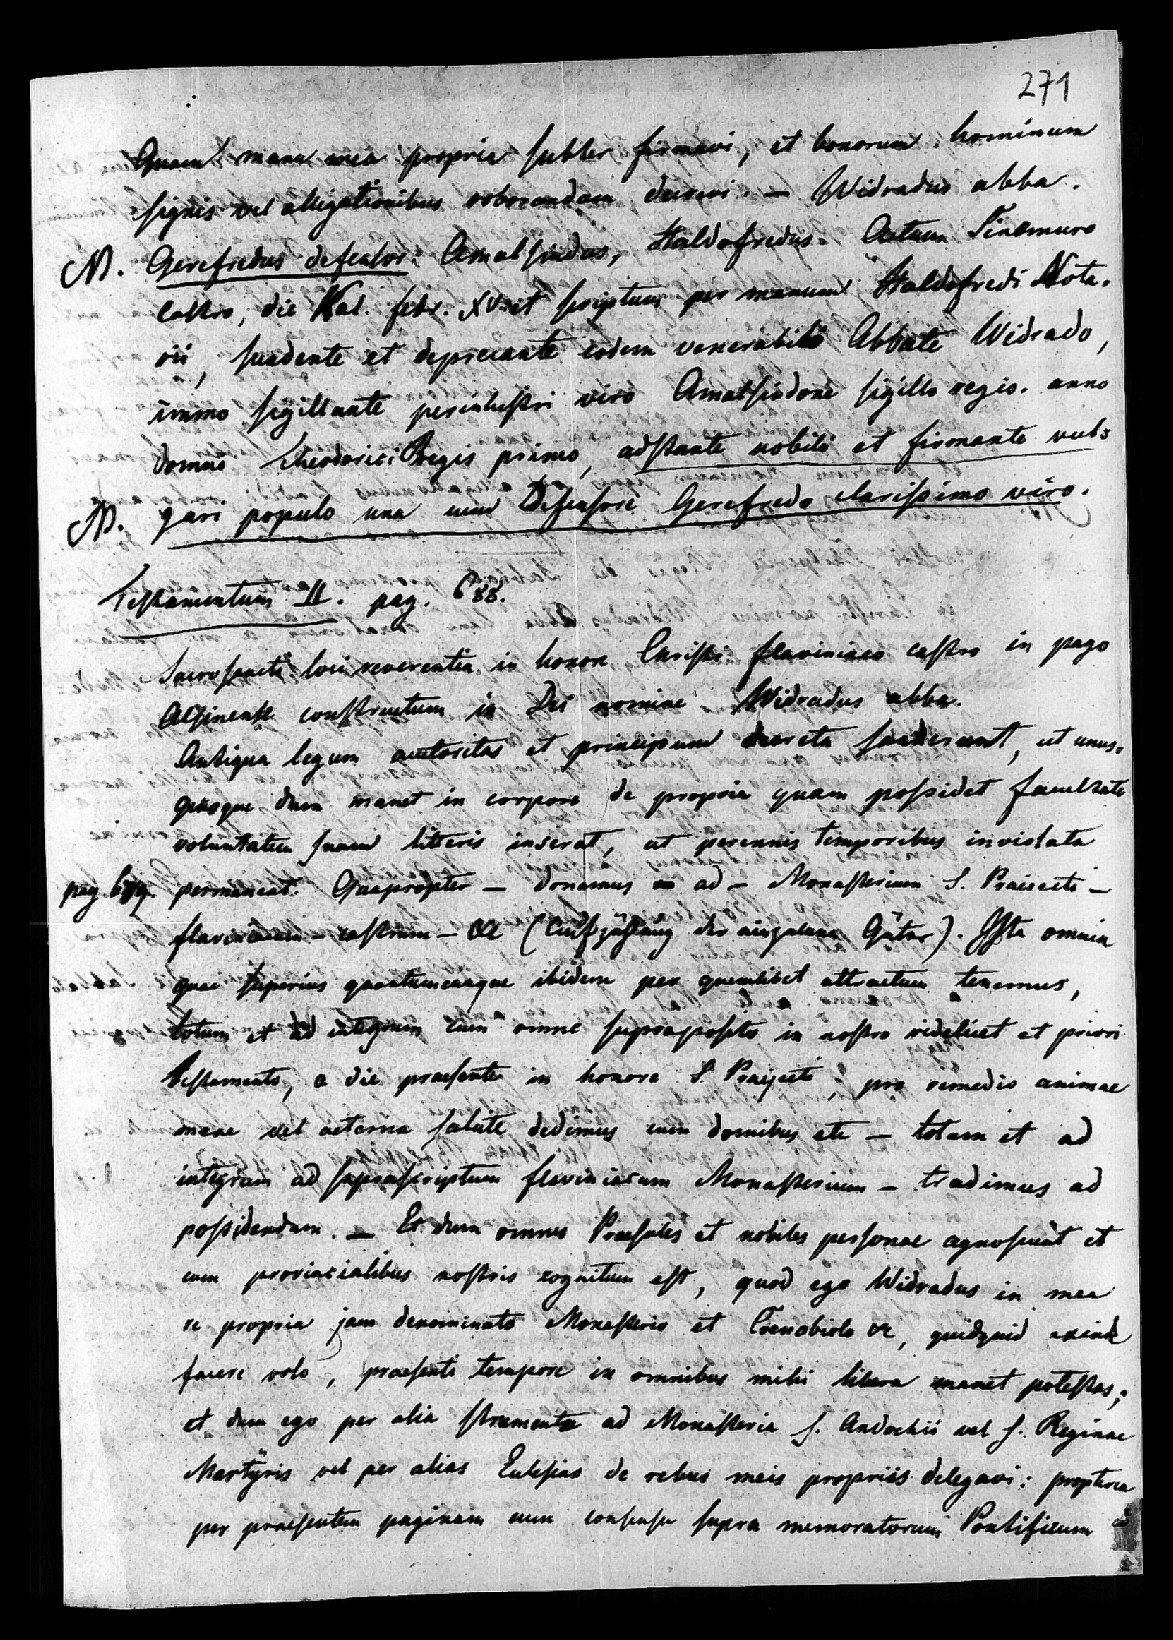 271
Quam manu mea propria subter firmavi, et bonorum hominum
signis vel alligationibus roborandam decrevi. — Widradus abba.
N. Gerefredus defensor. Amalsindus, Haldofredus. Actum Sinemuro
castro, die Kal. febr. XV. et scriptum per manum Haldofredi Nota-
rii, suadente et deprecante eodem venerabili Abbate Widrado,
immo sigillante perinlustri viro Amalsindone sigillo regio. anno
domni Theodorici Regis primo, adstante nobili et firmante vul-
N. gari populo una cum Defensore Gerefredo clarissimo viro.
Testamentum II. pag. 688.
Sacrosancti loci reverentia in honore Christi flaviniaco castro in pago
Alsinense constructum in Dei nomine Widradus abba.
Antiqua legum auctoritas et principum decreta sanxerunt, ut unus-
quisque dum manet in corpore de propria quam possidet facultate
voluntatem suam litteris inserat, ut perennis temporibus inviolata
pag 689. permaneat. Quapropter — donamus ad — Monasterium S. Praiecti —
flaviniacum — castrum — &c (Aufzählung der einzelnen Güter). Ista omnia
quae superius quantumcunque ibidem per quemlibet attractum tenemus,
totum et ad integrum cum omne supraposito in nostro videlicet et priori
testamento, a die praesente in honore S. Praejecti, pro remedio animae
meae vel aeterna salute dedimus cum domibus etc — totum et ad
integrum ad suprascriptum flaviniacum Monasterium — tradimus ad
possidendum. — Et dum omnes Praesules et nobiles personae agnoscunt et
cum provincialibus nostris cognitum est, quod ego Widradus in mea
re propria jam denominato Monasterio et Coenobiolo &c, quidquid exinde
facere volo, praesenti tempore in omnibus mihi libera manet potestas;
et dum ego per alia strumenta ad Monasteria S. Andochii vel S. Reginae
Martÿris vel per alias Eclesias de rebus meis propriis delegavi: propterea
per praesentem paginam cum consensu supra memoratorum Pontificum